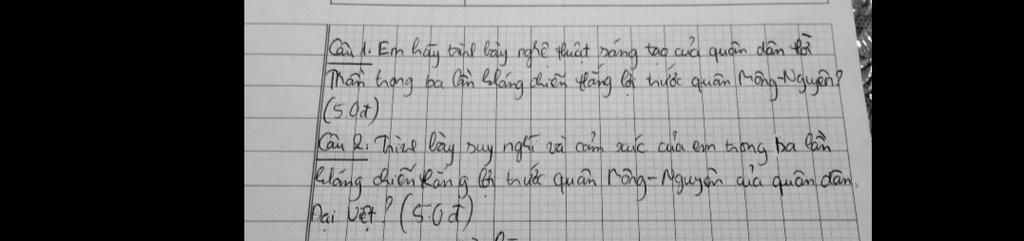 Câu 1. Em hãy trình bày nghệ thuật sáng tạo của quân dân
Trần trong ba lần kháng chiến thắng lợi trước quân Mông-Nguyên?
(5.0đ)
Câu 2. Trình bày suy nghĩ và cảm xúc của em trong ba lần
kháng chiến thắng lợi trước quân Mông-Nguyên của quân dân
Đại Việt? (5.0đ)